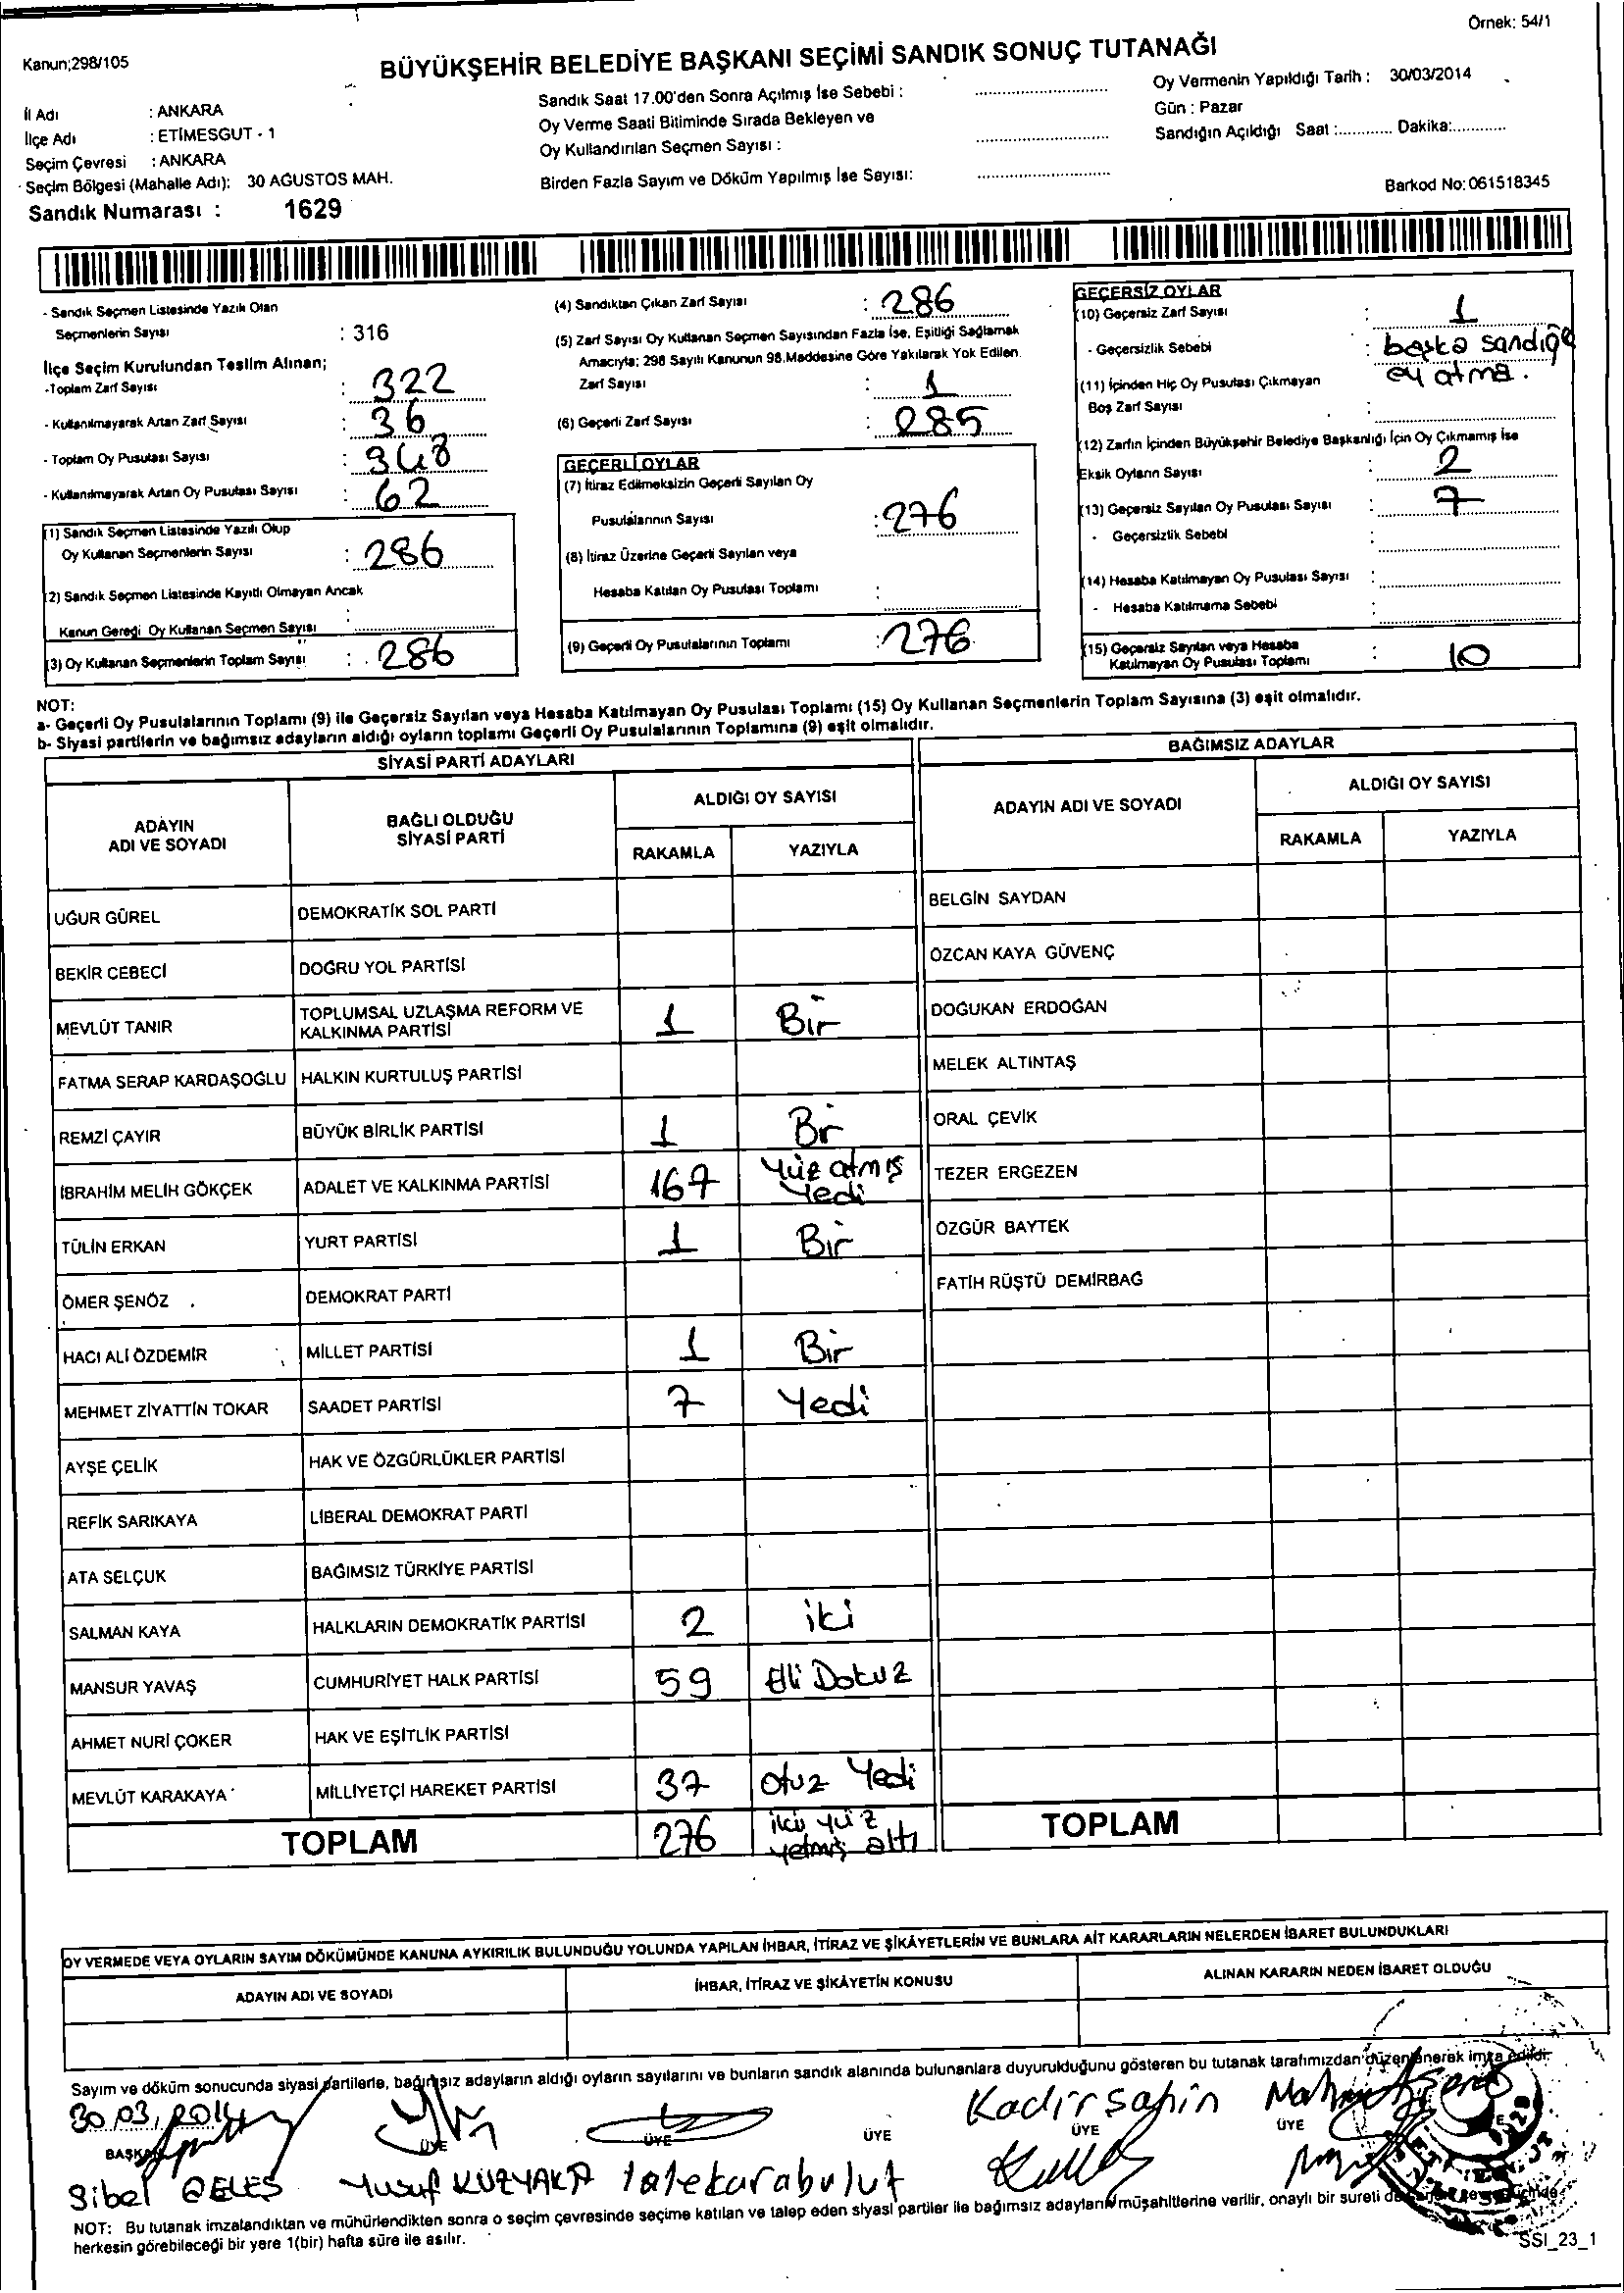 Örnek: 54/1
Kanun;298/105
BÜYÜKŞEHİR BELEDİYE BAŞKANI SEÇİMİ SANDIK SONUÇ TUTANAĞI
İl Adı : ANKARA
İlçe Adı : ETİMESGUT - 1
Seçim Çevresi : ANKARA
Seçim Bölgesi (Mahalle Adı): 30 AĞUSTOS MAH.
Sandık Numarası : 1629
Sandık Saat 17.00'den Sonra Açılmış İse Sebebi :
Oy Verme Saati Bitiminde Sırada Bekleyen ve
Oy Kullandırılan Seçmen Sayısı :
Birden Fazla Sayım ve Döküm Yapılmış İse Sayısı:
Oy Vermenin Yapıldığı Tarih : 30/03/2014
Gün : Pazar
Sandığın Açıldığı Saat :............ Dakika:............
Barkod No: 061518345
- Sandık Seçmen Listesinde Yazılı Olan
Seçmenlerin Sayısı : 316
İlçe Seçim Kurulundan Teslim Alınan;
-Toplam Zarf Sayısı : 322
- Kullanılmayarak Artan Zarf Sayısı : 36
- Toplam Oy Pusulası Sayısı : 348
- Kullanılmayarak Artan Oy Pusulası Sayısı : 62
(1) Sandık Seçmen Listesinde Yazılı Olup
Oy Kullanan Seçmenlerin Sayısı : 286
(2) Sandık Seçmen Listesinde Kayıtlı Olmayan Ancak
Kanun Gereği Oy Kullanan Seçmen Sayısı :
(3) Oy Kullanan Seçmenlerin Toplam Sayısı : 286
(4) Sandıktan Çıkan Zarf Sayısı : 286
(5) Zarf Sayısı Oy Kullanan Seçmen Sayısından Fazla İse, Eşitliği Sağlamak
Amacıyla; 298 Sayılı Kanunun 98.Maddesine Göre Yakılarak Yok Edilen.
Zarf Sayısı : 1
(6) Geçerli Zarf Sayısı : 285
GEÇERLİ OYLAR
(7) İtiraz Edilmeksizin Geçerli Sayılan Oy
Pusulalarının Sayısı : 276
(8) İtiraz Üzerine Geçerli Sayılan veya
Hesaba Katılan Oy Pusulası Toplamı :
(9) Geçerli Oy Pusulalarının Toplamı : 276
GEÇERSİZ OYLAR
(10) Geçersiz Zarf Sayısı : 1
- Geçersizlik Sebebi : başka sandığa
oy atma.
(11) İçinden Hiç Oy Pusulası Çıkmayan
Boş Zarf Sayısı :
(12) Zarfın İçinden Büyükşehir Belediye Başkanlığı İçin Oy Çıkmamış İse
Eksik Oyların Sayısı : 2
(13) Geçersiz Sayılan Oy Pusulası Sayısı : 7
- Geçersizlik Sebebi :
(14) Hesaba Katılmayan Oy Pusulası Sayısı :
- Hesaba Katılmama Sebebi :
(15) Geçersiz Sayılan veya Hesaba
Katılmayan Oy Pusulası Toplamı : 10
NOT:
a- Geçerli Oy Pusulalarının Toplamı (9) ile Geçersiz Sayılan veya Hesaba Katılmayan Oy Pusulası Toplamı (15) Oy Kullanan Seçmenlerin Toplam Sayısına (3) eşit olmalıdır.
b- Siyasi partilerin ve bağımsız adayların aldığı oyların toplamı Geçerli Oy Pusulalarının Toplamına (9) eşit olmalıdır.
SİYASİ PARTİ ADAYLARI
ADAYIN ADI VE SOYADI
BAĞLI OLDUĞU SİYASİ PARTİ
ALDIĞI OY SAYISI
RAKAMLA YAZIYLA
UĞUR GÜREL DEMOKRATİK SOL PARTİ
BEKİR CEBECİ DOĞRU YOL PARTİSİ
MEVLÜT TANIR TOPLUMSAL UZLAŞMA REFORM VE KALKINMA PARTİSİ 1 Bir
FATMA SERAP KARDAŞOĞLU HALKIN KURTULUŞ PARTİSİ
REMZİ ÇAYIR BÜYÜK BİRLİK PARTİSİ 1 Bir
İBRAHİM MELİH GÖKÇEK ADALET VE KALKINMA PARTİSİ 167 Yüz atmış Yedi
TÜLİN ERKAN YURT PARTİSİ 1 Bir
ÖMER ŞENÖZ DEMOKRAT PARTİ
HACI ALİ ÖZDEMİR MİLLET PARTİSİ 1 Bir
MEHMET ZİYATTİN TOKAR SAADET PARTİSİ 7 Yedi
AYŞE ÇELİK HAK VE ÖZGÜRLÜKLER PARTİSİ
REFİK SARIKAYA LİBERAL DEMOKRAT PARTİ
ATA SELÇUK BAĞIMSIZ TÜRKİYE PARTİSİ
SALMAN KAYA HALKLARIN DEMOKRATİK PARTİSİ 2 iki
MANSUR YAVAŞ CUMHURİYET HALK PARTİSİ 59 Elli Dokuz
AHMET NURİ ÇOKER HAK VE EŞİTLİK PARTİSİ
MEVLÜT KARAKAYA MİLLİYETÇİ HAREKET PARTİSİ 37 Otuz Yedi
TOPLAM 276 iki yüz yetmiş altı
BAĞIMSIZ ADAYLAR
ADAYIN ADI VE SOYADI
ALDIĞI OY SAYISI
RAKAMLA YAZIYLA
BELGİN SAYDAN
ÖZCAN KAYA GÜVENÇ
DOĞUKAN ERDOĞAN
MELEK ALTINTAŞ
ORAL ÇEVİK
TEZER ERGEZEN
ÖZGÜR BAYTEK
FATİH RÜŞTÜ DEMİRBAĞ
TOPLAM
OY VERMEDE VEYA OYLARIN SAYIM DÖKÜMÜNDE KANUNA AYKIRILIK BULUNDUĞU YOLUNDA YAPILAN İHBAR, İTİRAZ VE ŞİKÂYETLERİN VE BUNLARA AİT KARARLARIN NELERDEN İBARET BULUNDUKLARI
ADAYIN ADI VE SOYADI İHBAR, İTİRAZ VE ŞİKÂYETİN KONUSU ALINAN KARARIN NEDEN İBARET OLDUĞU
Sayım ve döküm sonucunda siyasi partilerle, bağımsız adayların aldığı oyların sayılarını ve bunların sandık alanında bulunanlara duyurulduğunu gösteren bu tutanak tarafımızdan düzenlenerek imza edildi.
30.03.2014 Kadir şahin
BAŞKAN ÜYE ÜYE ÜYE ÜYE ÜYE
Sibel Yusuf KUZYAKA lalekarabulut
NOT: Bu tutanak imzalandıktan ve mühürlendikten sonra o seçim çevresinde seçime katılan ve talep eden siyasi partiler ile bağımsız adayların müşahitlerine verilir, onaylı bir sureti
herkesin görebileceği bir yere 1(bir) hafta süre ile asılır.
SSI_23_1